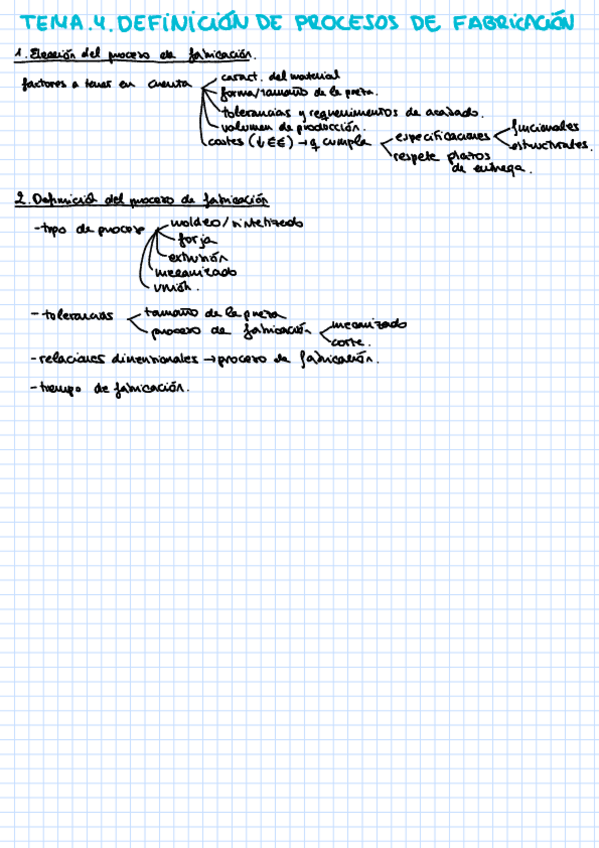 TEMA.4.DEFINICIÓN DE PROCESOS DE FABRICACIÓN
1. Elección del proceso de fabricación.
factores a tener en cuenta
caract. del material
forma/tamaño de la pieza.
tolerancias y requerimientos de acabado.
volumen de producción.
costes (↓€€) → q cumpla
especificaciones
funcionales
estructurales.
respete plazos
de entrega.
2. Definición del proceso de fabricación
- tipo de proceso
moldeo/sintetizado
forja
extrusión
mecanizado
unión.
- tolerancias
tamaño de la pieza
proceso de fabricación
mecanizado
corte.
- relaciones dimensionales → proceso de fabricación.
- tiempo de fabricación.